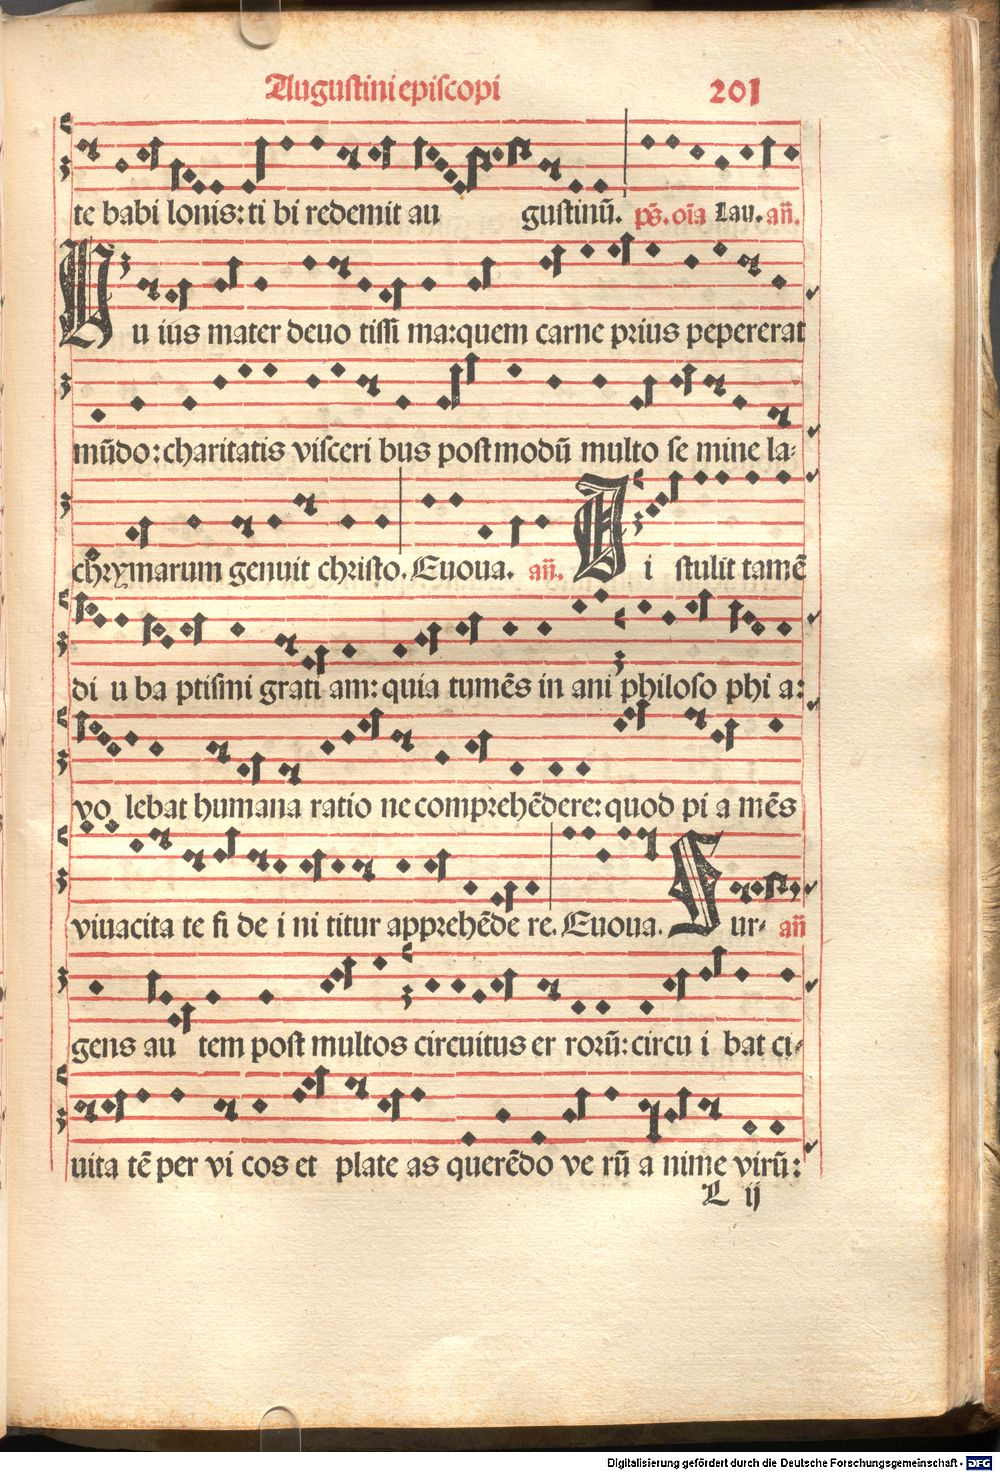 Augustini episcopi 201
te babi lonis: ti bi redemit au gustinū. ps̄. oīa Lau. an̄.
Hu ius mater deuo tissi ma: quem carne prius pepererat
mūdo: charitatis visceri bus postmodū multo se mine la-
chrymarum genuit christo. Euoua. an̄. Di stulit tamē
di u ba ptismi grati am: quia tumēs in ani philoso phi a:
vo lebat humana ratio ne comprehēdere: quod pi a mēs
viuacita te fi de i ni titur apprehēde re. Euoua. Sur- an̄
gens au tem post multos circuitus er rorū: circu i bat ci-
uita tē per vi cos et plate as querēdo ve rū a nime virū:
L ij
Digitalisierung gefördert durch die Deutsche Forschungsgemeinschaft - DFG